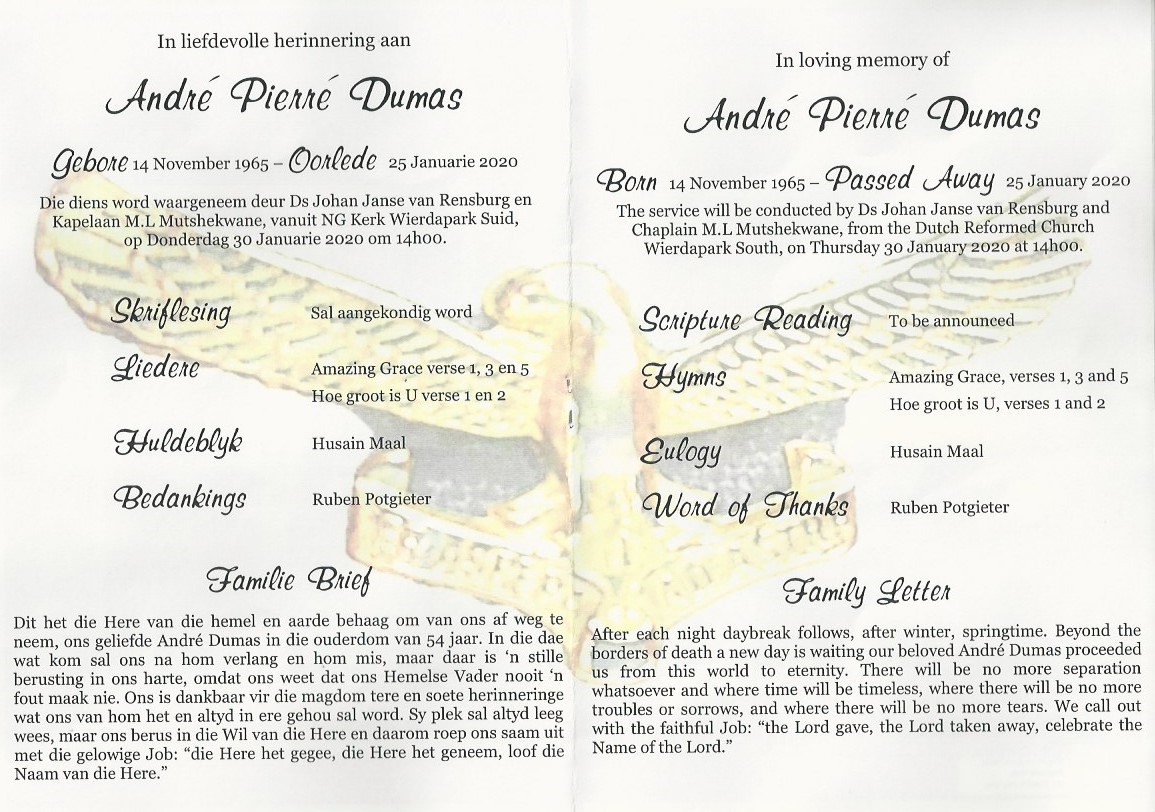 In liefdevolle herinnering aan
André Pierré Dumas
Gebore 14 November 1965 – Oorlede 25 Januarie 2020
Die diens word waargeneem deur Ds Johan Janse van Rensburg en
Kapelaan M.L Mutshekwane, vanuit NG Kerk Wierdapark Suid,
op Donderdag 30 Januarie 2020 om 14h00.
Skriflesing Sal aangekondig word
Liedere Amazing Grace verse 1, 3 en 5
Hoe groot is U verse 1 en 2
Huldeblyk Husain Maal
Bedankings Ruben Potgieter
Familie Brief
Dit het die Here van die hemel en aarde behaag om van ons af weg te
neem, ons geliefde André Dumas in die ouderdom van 54 jaar. In die dae
wat kom sal ons na hom verlang en hom mis, maar daar is ‘n stille
berusting in ons harte, omdat ons weet dat ons Hemelse Vader nooit ‘n
fout maak nie. Ons is dankbaar vir die magdom tere en soete herinneringe
wat ons van hom het en altyd in ere gehou sal word. Sy plek sal altyd leeg
wees, maar ons berus in die Wil van die Here en daarom roep ons saam uit
met die gelowige Job: “die Here het gegee, die Here het geneem, loof die
Naam van die Here.”
In loving memory of
André Pierré Dumas
Born 14 November 1965 – Passed Away 25 January 2020
The service will be conducted by Ds Johan Janse van Rensburg and
Chaplain M.L Mutshekwane, from the Dutch Reformed Church
Wierdapark South, on Thursday 30 January 2020 at 14h00.
Scripture Reading To be announced
Hymns Amazing Grace, verses 1, 3 and 5
Hoe groot is U, verses 1 and 2
Eulogy Husain Maal
Word of Thanks Ruben Potgieter
Family Letter
After each night daybreak follows, after winter, springtime. Beyond the
borders of death a new day is waiting our beloved André Dumas proceeded
us from this world to eternity. There will be no more separation
whatsoever and where time will be timeless, where there will be no more
troubles or sorrows, and where there will be no more tears. We call out
with the faithful Job: “the Lord gave, the Lord taken away, celebrate the
Name of the Lord.”